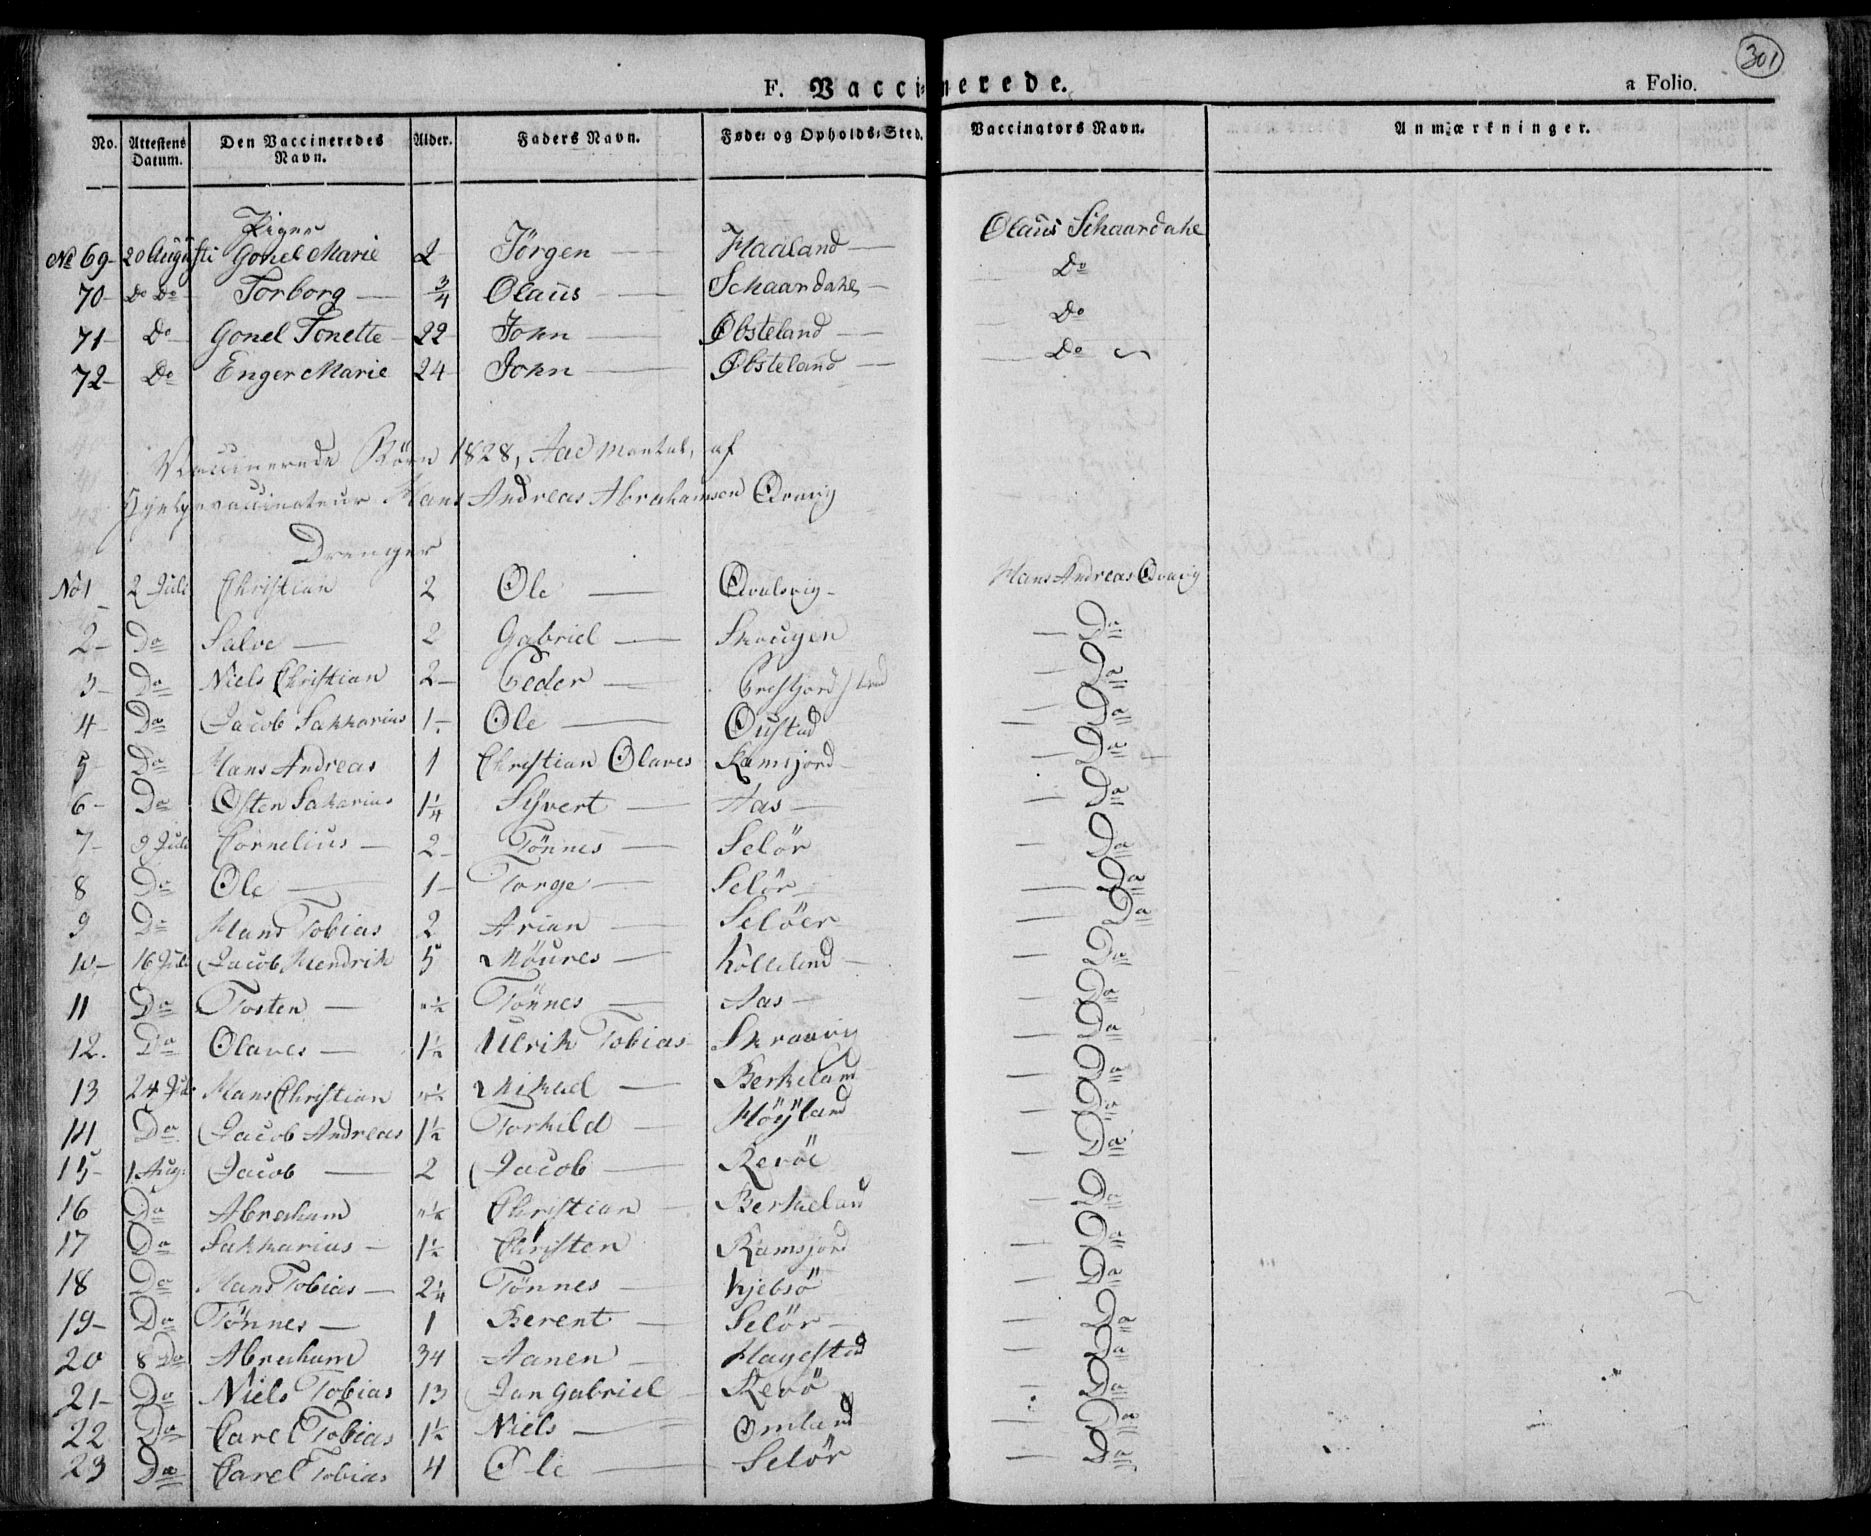 301
F. Vaccinerede. a Folio.
No. Attestens Datum. Den Vaccineredes Navn. Alder. Faders Navn. Føde- og Opholds-Sted. Vaccinators Navn. Anmærkninger.
Piger
No 69 20 Augusti Gonel Marie 2 Jörgen Haaland Olaus Schaardahl
70 Do Do Torborg 3/4 Olaus Schaardahl Do
71 Do Gonel Tonette 22 John Obsteland Do
72 Do Enger Marie 24 John Obsteland Do
Vaccinerede Börn 1828, Aad Mandal, af
Hjelpevaccinateur Hans Andreas Abrahamsen Qvavig
Drenger
No 1 2 Juli Christian 2 Ole Hans Andreas Qvavig
2 Do Salve 2 Gabriel Skougen Do
3 Do Niels Christian 2 Peder Do
4 Do Jacob Sakkarius 1 Ole Oustad Do
5 Do Hans Andreas 1 Christian Olaves Ramsjord Do
6 Do Osten Sakarius 1 1/4 Syvert Aas Do
7 9 Juli Cornelius 2 Tönnes Selör Do
8 Do Ole 1 Torge Selör Do
9 Do Hans Tobias 2 Arian Selöer Do
10 16 Juli Jacob Hendrik 5 Möures Kölleland Do
11 Do Tosten " 1/2 Tönnes Aas Do
12. Do Olaves 1 1/2 Ulrik Tobias Skraavig Do
13 24 Juli Hans Christian " 1/2 Mikael Berkeland Do
14 Do Jacob Andreas 1 1/2 Torkild Höyland Do
15 1 Aug. Jacob 2 Jacob Revöe Do
16 Do Abraham " 1/2 Christian Berkeland Do
17 Do Sakkarias 1 1/2 Christen Ramsjord Do
18 Do Hans Tobias 2 1/4 Tönnes Kjebsö Do
19 Do Tönnes 1 Berent Selör Do
20 8 Do Abraham 34 Aanen Hagestad Do
21 Do Niels Tobias 13 Jan Gabriel Revö Do
22 Do Carel Tobias 1 1/2 Niels Omland Do
23 Do Carel Tobias 4 Ole Selör Do